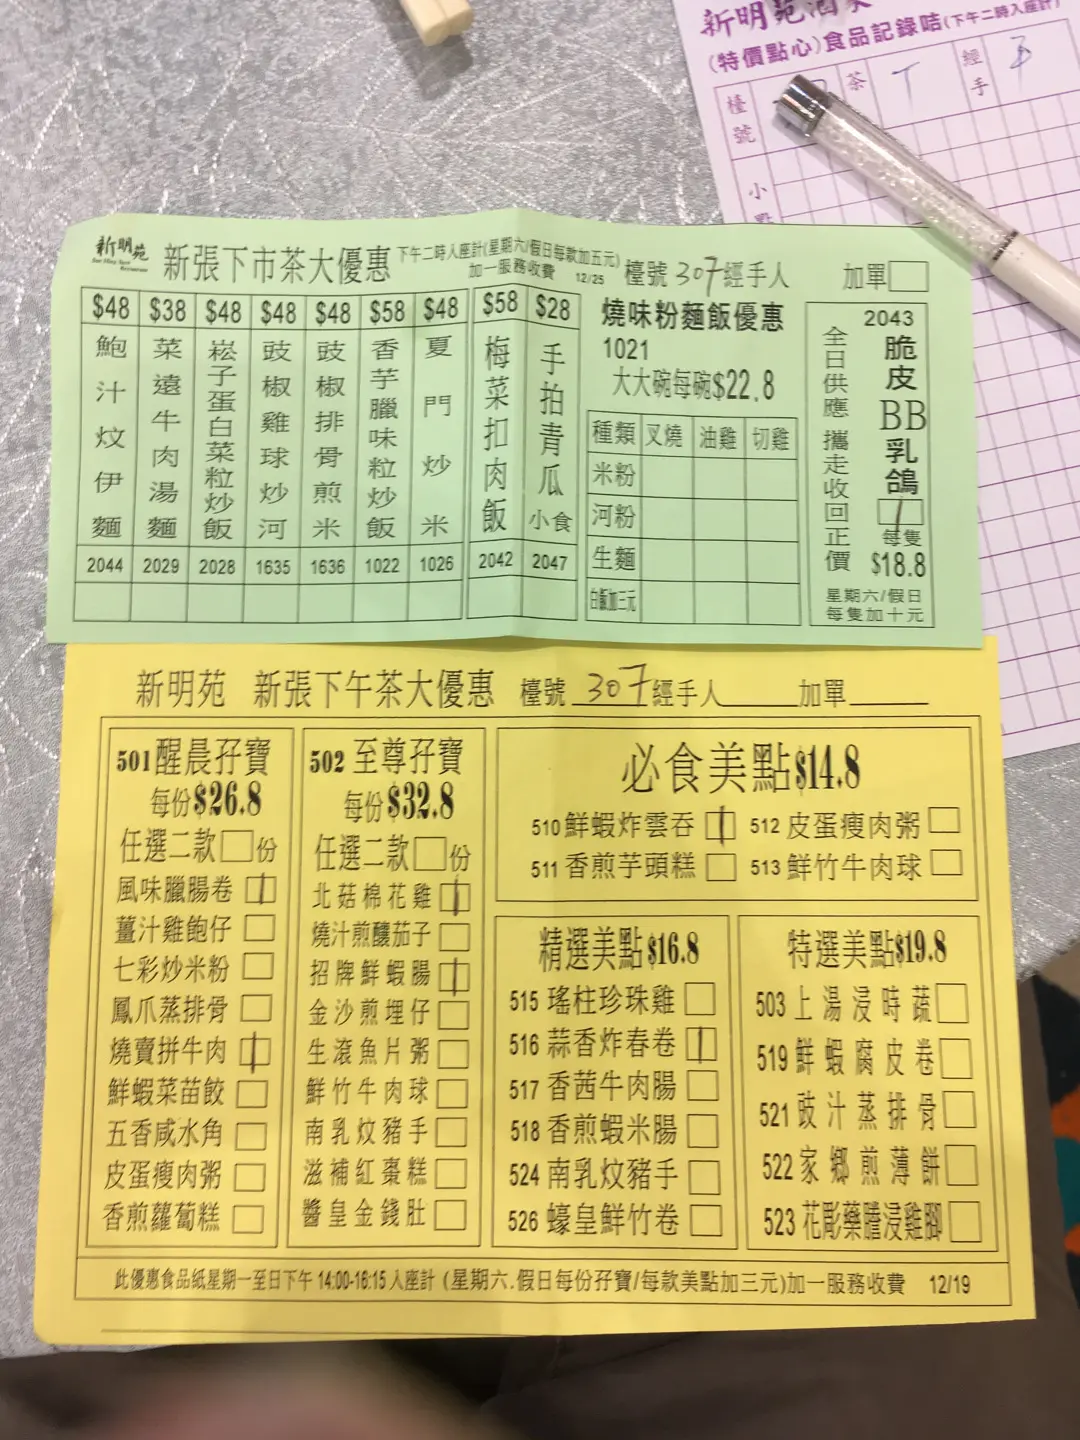 新明苑酒家
(特價點心)食品記錄咭(下午二時入座計)
檯號
茶
T
經手
小點
新明苑
新張下市茶大優惠
下午二時入座計(星期六/假日每款加五元)
加一服務收費 12/25
檯號 307 經手人
加單
$48 $38 $48 $48 $48 $58 $48 $58 $28
鮑汁炆伊麵
菜遠牛肉湯麵
崧子蛋白菜粒炒飯
豉椒雞球炒河
豉椒排骨煎米
香芋臘味粒炒飯
夏門炒米
梅菜扣肉飯
手拍青瓜小食
2044 2029 2028 1635 1636 1022 1026 2042 2047
燒味粉麵飯優惠
1021
大大碗每碗$22.8
種類 叉燒 油雞 切雞
米粉
河粉
生麵
白飯加三元
全日供應 攜走收回正價
2043
脆皮BB乳鴿
每隻
$18.8
星期六/假日
每隻加十元
新明苑 新張下午茶大優惠 檯號 307 經手人 加單
501醒晨孖寶
每份$26.8
任選二款 份
風味臘腸卷
薑汁雞飽仔
七彩炒米粉
鳳爪蒸排骨
燒賣拼牛肉
鮮蝦菜苗餃
五香咸水角
皮蛋瘦肉粥
香煎蘿蔔糕
502 至尊孖寶
每份$32.8
任選二款 份
北菇棉花雞
燒汁煎釀茄子
招牌鮮蝦腸
金沙煎堆仔
生滾魚片粥
鮮竹牛肉球
南乳炆豬手
滋補紅棗糕
醬皇金錢肚
必食美點$14.8
510鮮蝦炸雲吞 512 皮蛋瘦肉粥
511 香煎芋頭糕 513 鮮竹牛肉球
精選美點$16.8
515 瑤柱珍珠雞
516 蒜香炸春卷
517 香茜牛肉腸
518 香煎蝦米腸
524 南乳炆豬手
526 蠔皇鮮竹卷
特選美點$19.8
503 上湯浸時蔬
519 鮮蝦腐皮卷
521 豉汁蒸排骨
522 家鄉煎薄餅
523 花彫藥膳浸雞腳
此優惠食品紙星期一至日下午 14:00-16:15 入座計 (星期六.假日每份孖寶/每款美點加三元)加一服務收費 12/19